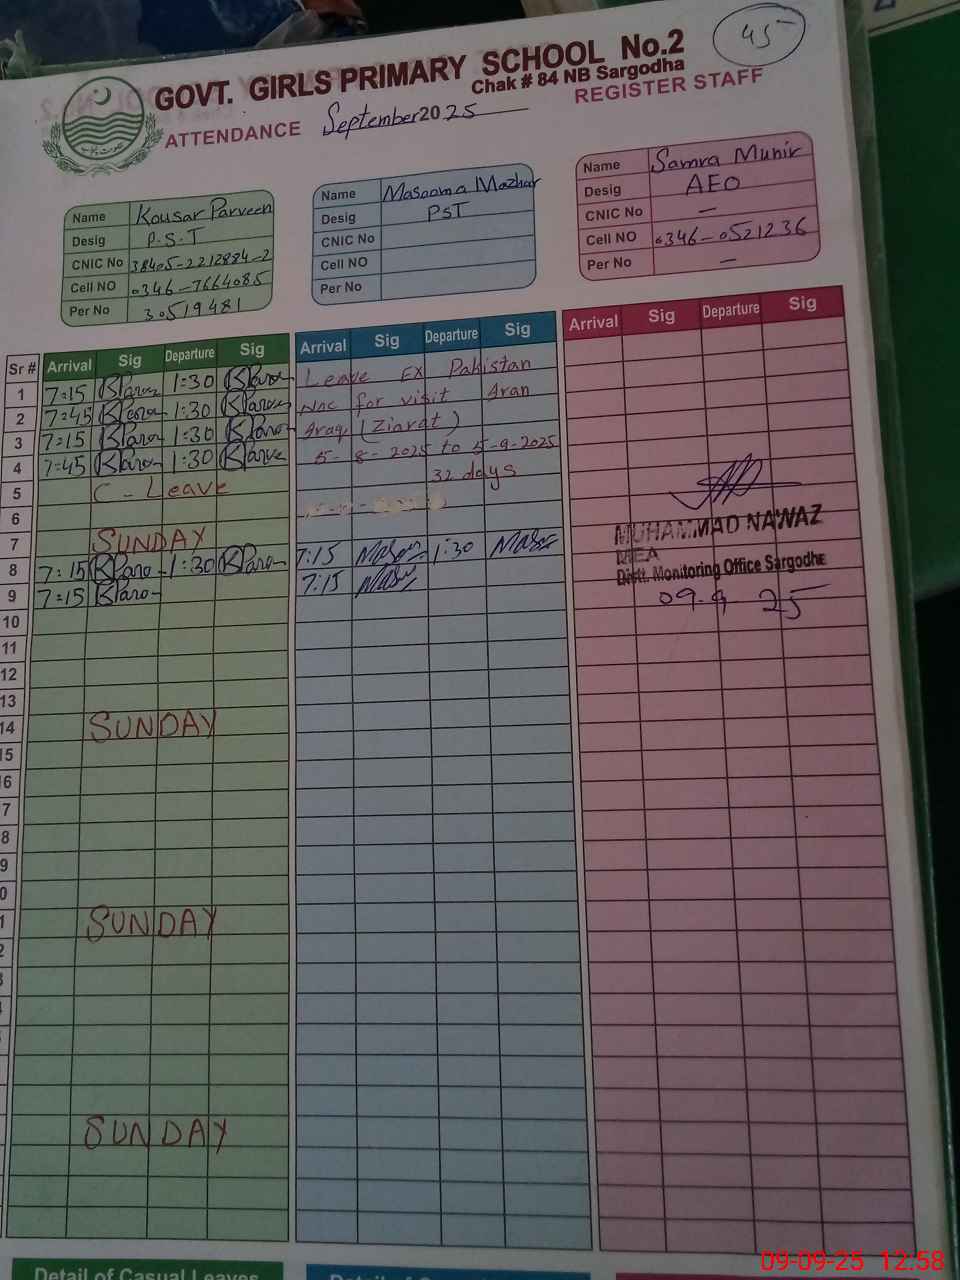 45
GOVT. GIRLS PRIMARY SCHOOL No.2
Chak # 84 NB Sargodha
ATTENDANCE September 2025 REGISTER STAFF
Name Kousar Parveen
Desig P.S.T
CNIC No 38405-2212884-2
Cell NO 0346-7664085
Per No 30519481
Name Masooma Mazhar
Desig PST
CNIC No
Cell NO
Per No
Name Samra Munir
Desig AEO
CNIC No -
Cell NO 0346-0521236
Per No -
Sr # Arrival Sig Departure Sig
1 7:15 KParo 1:30 KParo
2 7:45 KParo 1:30 KParo
3 7:15 KParo 1:30 KParo
4 7:45 KParo 1:30 KParo
5 C-Leave
6
7 SUNDAY
8 7:15 KParo 1:30 KParo
9 7:15 KParo
10
11
12
13
14 SUNDAY
15
6
7
8
9
0
1 SUNDAY
2
SUNDAY
Arrival Sig Departure Sig
Leave EX Pakistan
Noc for visit Iran
Iraq (Ziarat)
5-8-2025 to 5-9-2025
32 days
7:15 1:30
7:15
Arrival Sig Departure Sig
MUHAMMAD NAWAZ
MEA
Distt. Monitoring Office Sargodha
09-9 25
Detail of Casual Leaves
09-09-25 12:58